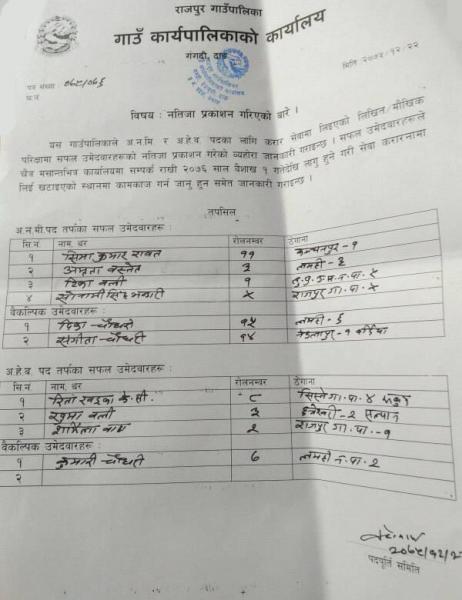 राजपुर गाउँपालिका
गाउँ कार्यपालिकाको कार्यालय
गंगदी, दाङ
मिति २०७५/१२/२२
पत्र संख्या ०७५/०७६
च.नं
विषय : नतिजा प्रकाशन गरिएको बारे ।
यस गाउँपालिकाले अ.न.मि र अ.हे.व. पदका लागि करार सेवामा लिइएको लिखित/मौखिक
परिक्षामा सफल उमेदवारहरुको नतिजा प्रकाशन गरेको व्यहोरा जानकारी गराइन्छ । सफल उमेदवारहरुले
चैत्र मसान्तभित्र कार्यालयमा सम्पर्क राखी २०७६ साल बैशाख १ गतेदेखि लागु हुने गरी सेवा करारनामा
लिई खटाइएको स्थानमा कामकाज गर्न जानु हुन समेत जानकारी गराइन्छ ।
तपसिल
अ.न.मी.पद तर्फका सफल उमेदवारहरु :
सि.नं नाम, थर रोलनम्बर ठेगाना
१ सिमा कुमारी रावत ११ कञ्चनपुर - १
२ अमृता बस्नेत ३ लमही - ३
३ टिका वली १
४ ५ राजपुर गा.पा. ५
वैकल्पिक उमेदवारहरु :
१ टिका चौधरी १५ लमही - ६
२ संगीता चौधरी १४
अ.हे.व. पद तर्फका सफल उमेदवारहरु :
सि.नं नाम, थर रोलनम्बर ठेगाना
१ रिता खड्का के.सी. ८
२ वली ३
३ शर्मिला २ राजपुर गा.पा. - १
वैकल्पिक उमेदवारहरु :
१ कुमारी चौधरी ७ लमही न.पा. २
२
२०७५/१२/२
पदपूर्ति समिति